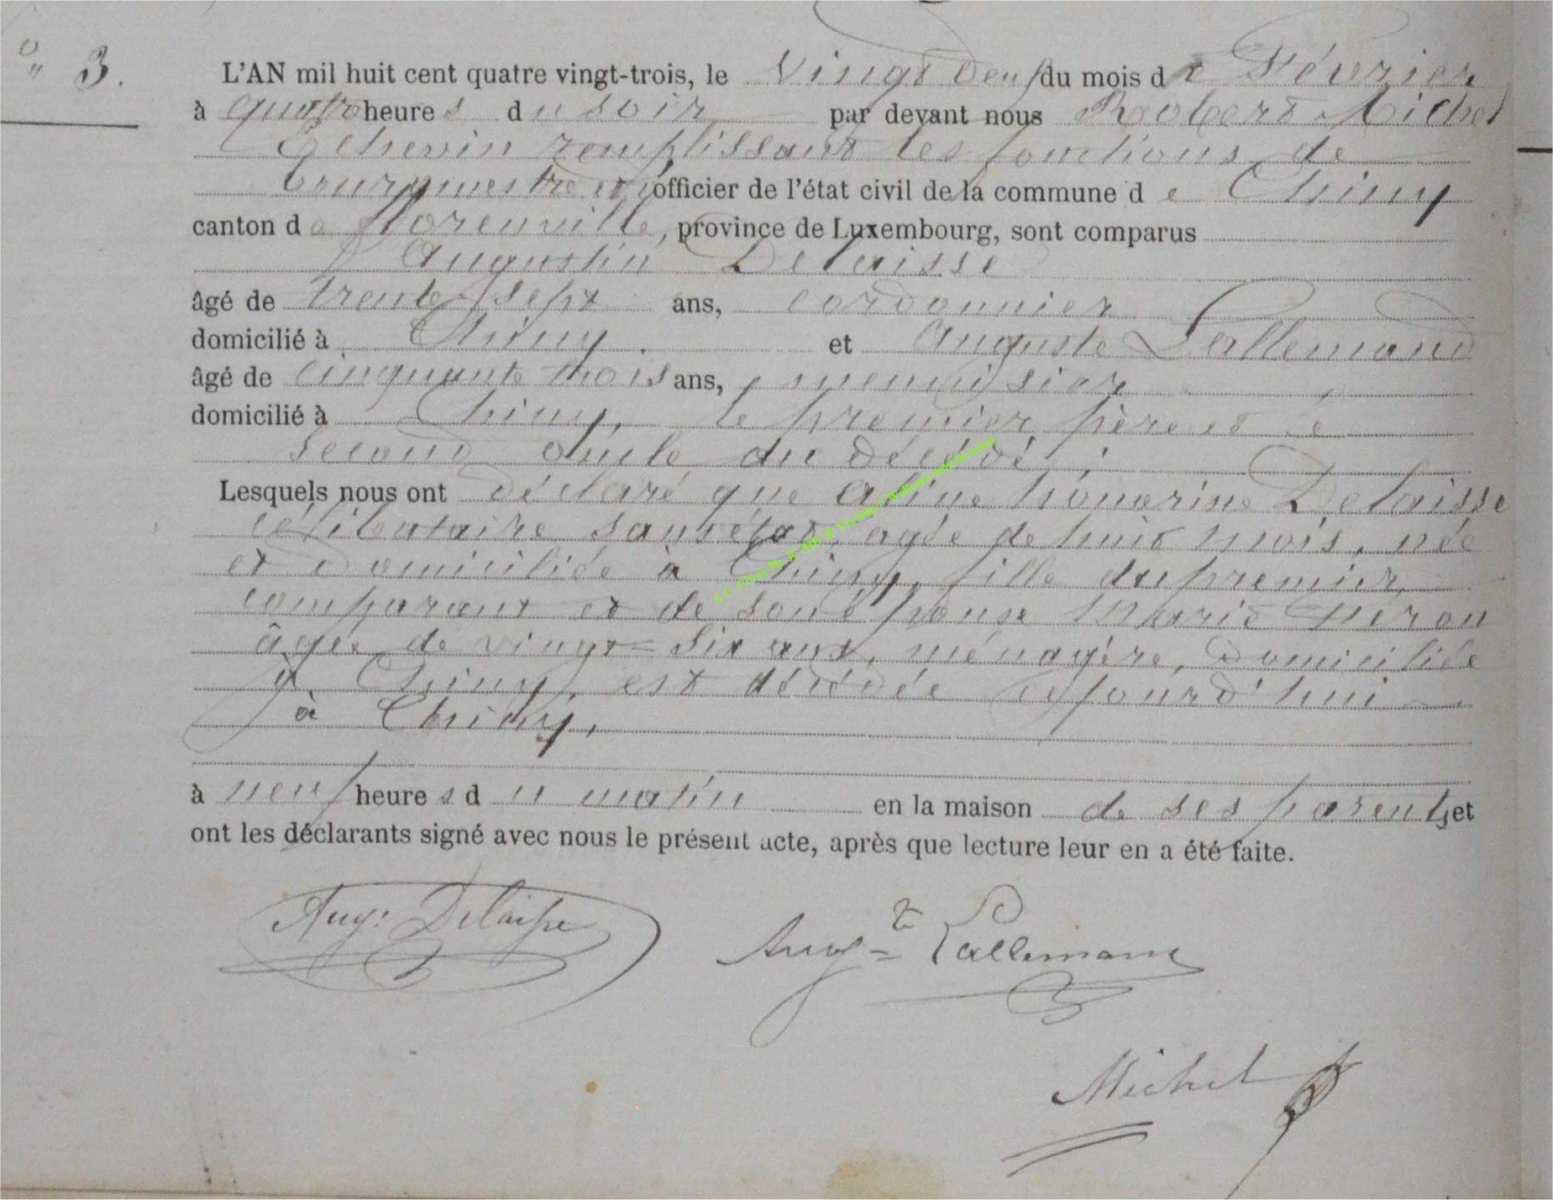 N° 3.
L'AN mil huit cent quatre vingt-trois, le Vingt deux du mois de Février
à quatre heures du soir par devant nous Robert Michel
Echevin remplissant les fonctions de
bourgmestre et officier de l'état civil de la commune de Chiny
canton de florenville, province de Luxembourg, sont comparus
Augustin Delaisse
âgé de trente-sept ans, cordonnier
domicilié à Chiny et Auguste Lallemand
âgé de cinquante trois ans, menuisier
domicilié à Chiny, le premier père et le
second oncle du décédé ;
Lesquels nous ont déclaré que Aline honorine Delaisse
célibataire sans état, agée de huit mois, née
et domiciliée à Chiny, fille du premier
comparant et de son épouse Marie
âgée de vingt-six ans, ménagère, domiciliée
à Chiny, est décédée cejourd'hui
à Chiny,
à neuf heures du matin en la maison de ses parents, et
ont les déclarants signé avec nous le présent acte, après que lecture leur en a été faite.
Aug: Delaisse
Aug=te Lallemand
Michel